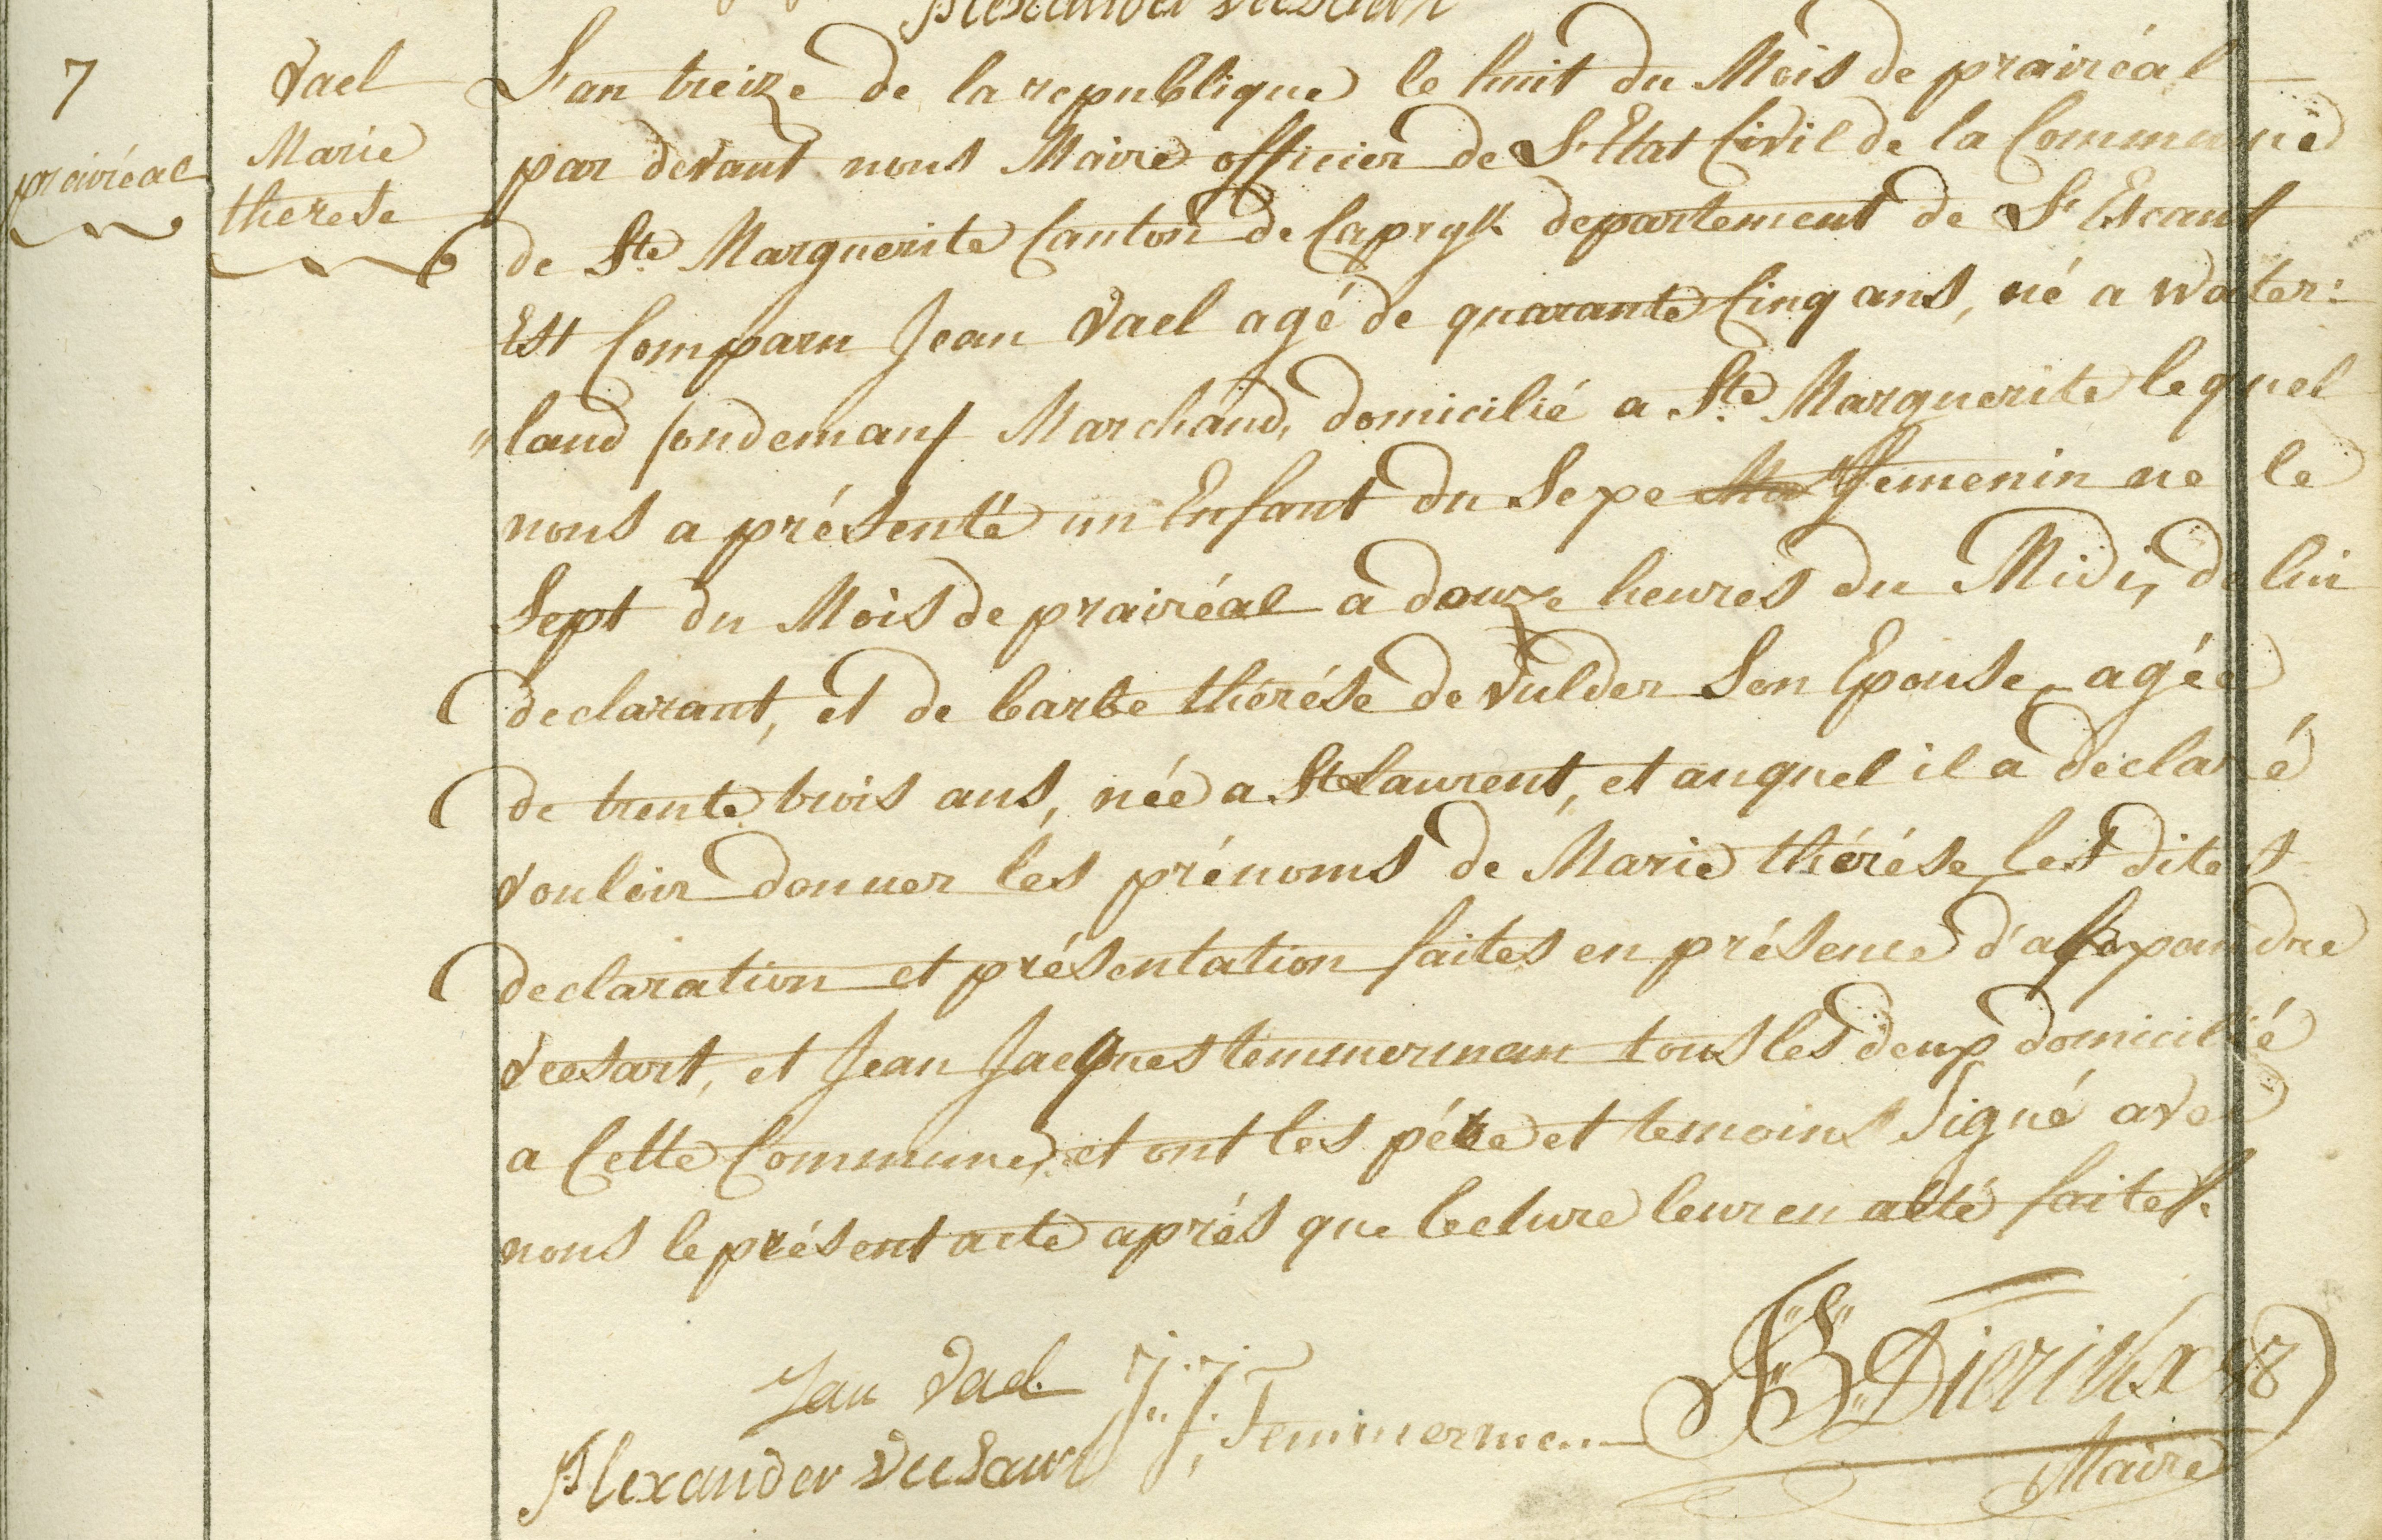 7
prairéal
Vael
Marie
therese
L'an treize de la republique le huit du Mois de prairéal
par devant nous Maire officier de L'Etat Civil de la Commune
de Ste Marguerite Canton de Capryk departement de L'Escaut
Est Comparu Jean Vael agé de quarante Cinq ans, né a water:
"land Marchand, domicilié a Ste Marguerite lequel
nous a présenté un Enfant du Sexe femenin ne le
Sept du Mois de prairéal a douze heures du Midi, de lui
declarant, et de barbe thérése de Vulder Son Epouse agée
de trente trois ans, née a St laurent, et auquel il a declaré
vouloir donner les prénoms de Marie thérése, Les dites
declaration et présentation faites en présence d'alexandre
Veesart, et Jean Jacques temmerman tous les deux domicilié
a Cette Commune, et ont les pére et temoins Signé avec
nous le présent acte aprés que lecture leur en a eté faites.
Jan Vael J: J: Temmerman Dierikx
Alexander Maire